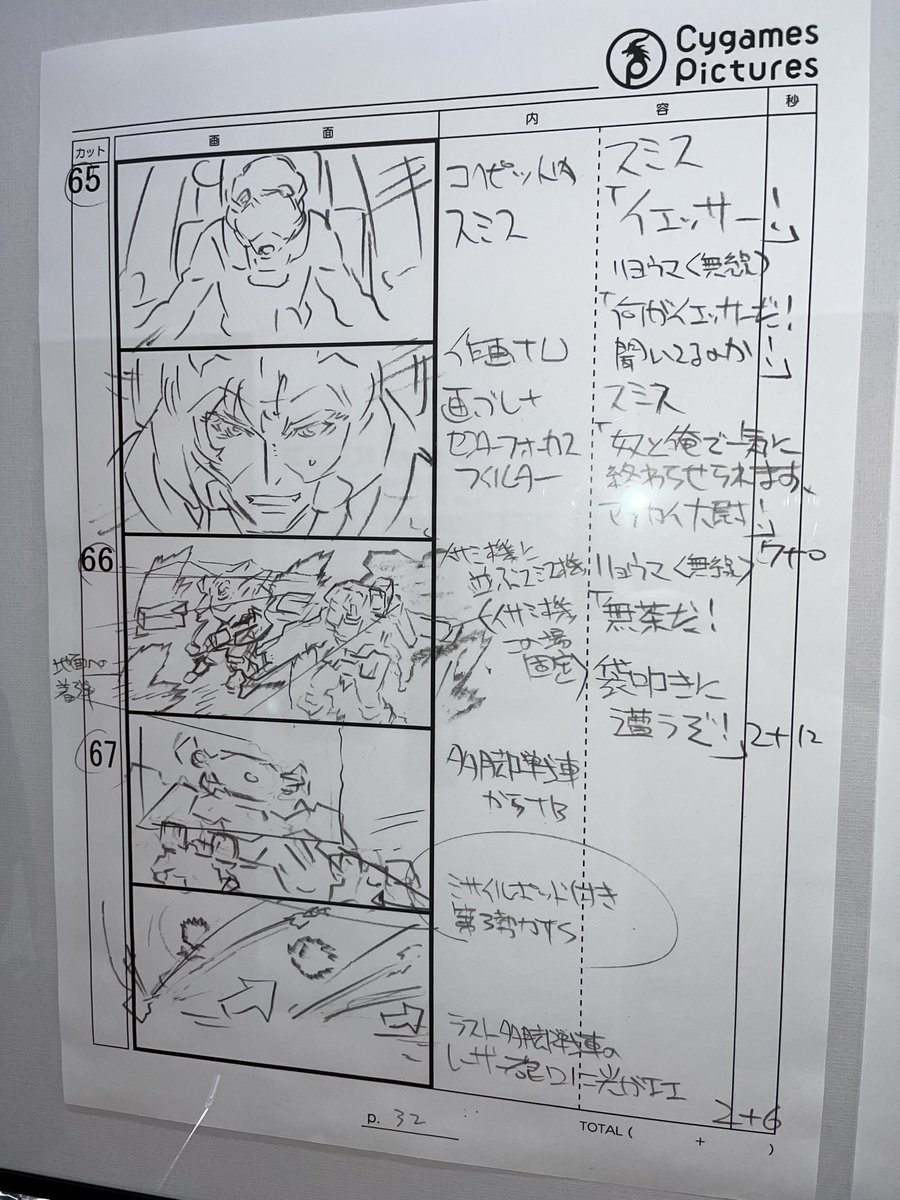 Cygames
Pictures
カット
画面
内容
秒
65
コクピット内
スミス
作画ナシ
画ブレ+
センターフォーカス
フィルター
スミス
「イエッサー!」
リョウマ(無線)
「何がイエッサーだ!
聞いてるのか!」
スミス
「奴と俺で一気に
終わらせられます、
大尉!」
7+0
66
地面への
着弾
イサミ機と
並ぶスミス機
(イサミ機
この場
固定)
リョウマ(無線)
「無茶だ!
袋叩きに
遭うぞ!」
2+12
67
多脚戦車
から
ミサイルポッド付き
第3勢力
ラスト多脚戦車の
レーザー砲口に光が
2+6
p. 32
TOTAL ( + )